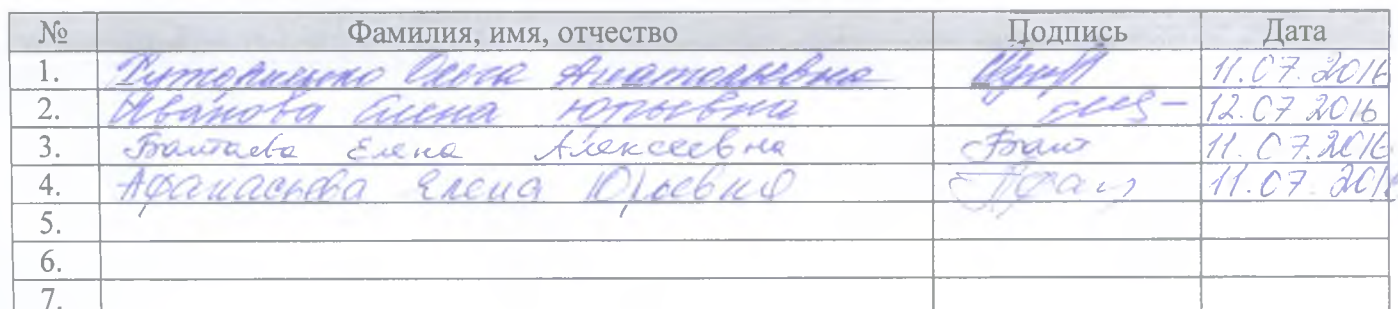 № Фамилия, имя, отчество Подпись Дата
1. Ольга Анатольевна 11.07.2016
2. Иванова Елена Юрьевна 12.07 2016
3. Балтаева Елена Алексеевна Балт 11.07.2016
4. Афанасьева Елена Юрьевна Афан 11.07.201
5.
6.
7.